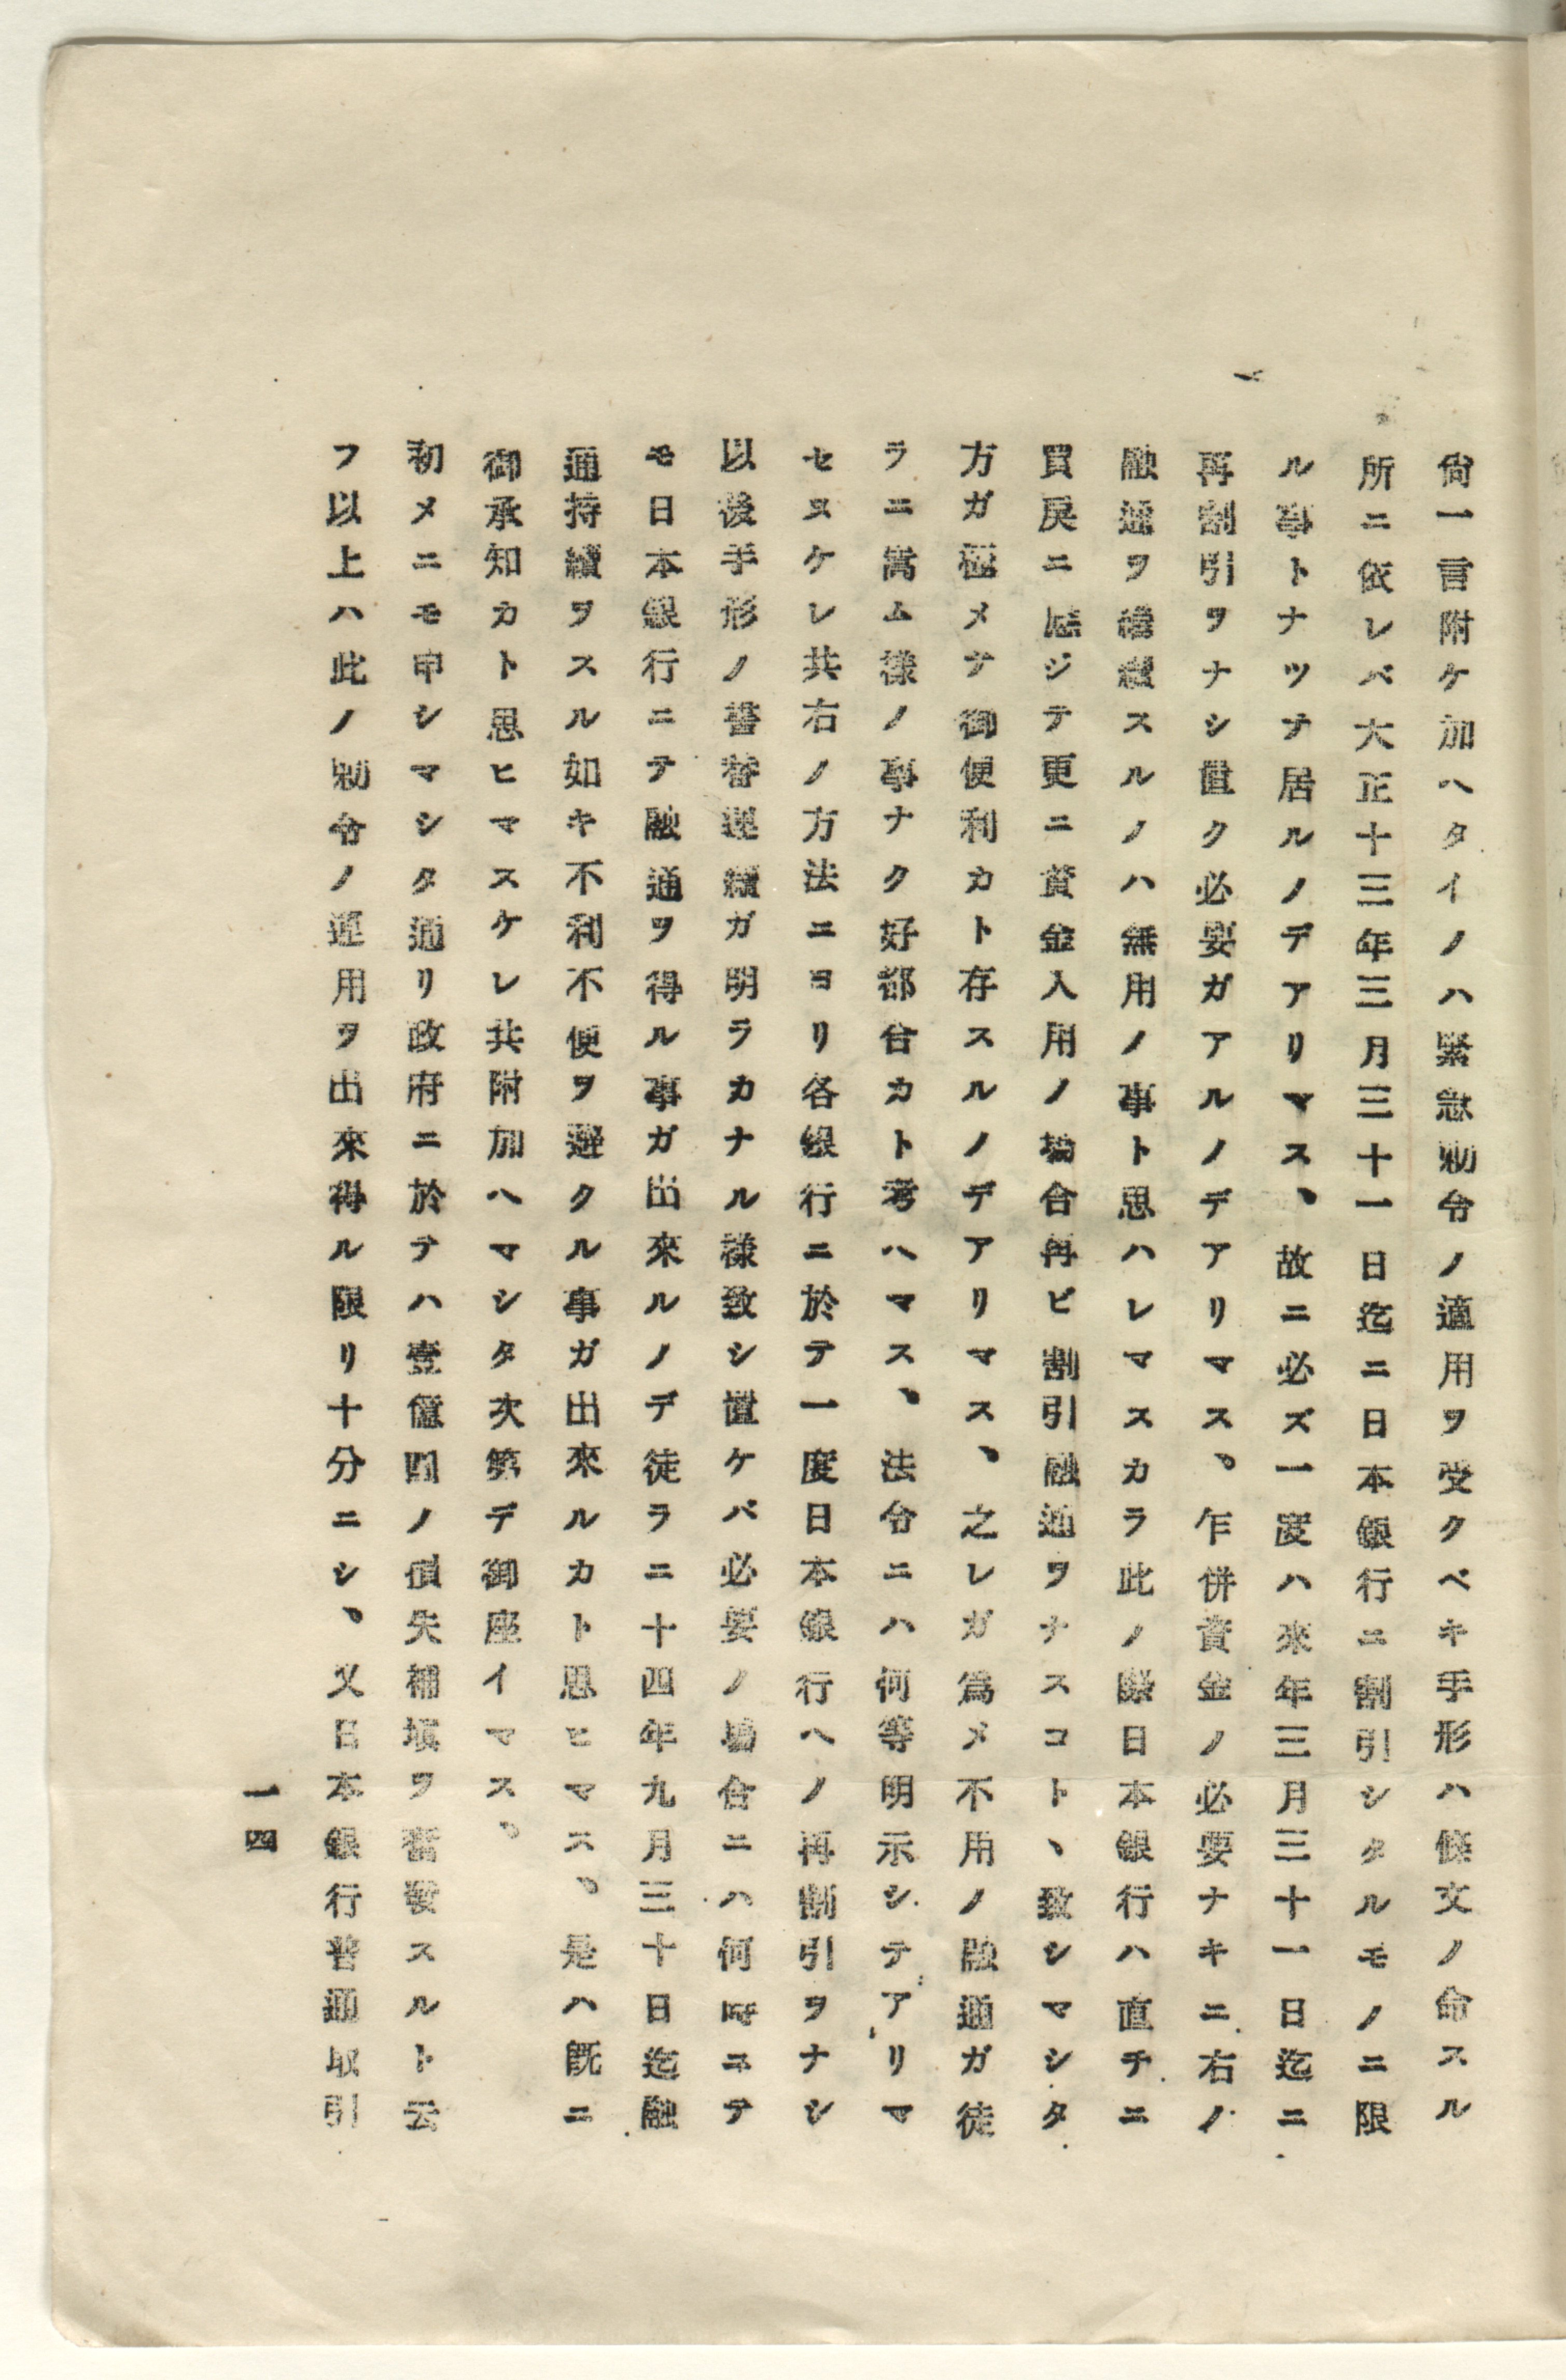 尙一言附ケ加ヘタイノハ緊急勅令ノ適用ヲ受クベキ手形ハ條文ノ命スル
所ニ依レバ大正十三年三月三十一日迄ニ日本銀行ニ割引シタルモノニ限
ル事トナツテ居ルノデアリマス、故ニ必ズ一度ハ來年三月三十一日迄ニ
再割引ヲナシ置ク必要ガアルノデアリマス、乍併資金ノ必要ナキニ右ノ
融通ヲ繼續スルノハ無用ノ事ト思ハレマスカラ此ノ際日本銀行ハ直チニ
買戻ニ應ジテ更ニ資金入用ノ塲合再ビ割引融通ヲナスコトヽ致シマシタ
方ガ極メテ御便利カト存スルノデアリマス、之レガ爲メ不用ノ融通ガ徒
ラニ嵩ム樣ノ事ナク好都合カト考ヘマス、法令ニハ何等明示シテアリマ
セヌケレ共右ノ方法ニヨリ各銀行ニ於テ一度日本銀行ヘノ再割引ヲナシ
以後手形ノ書替連續ガ明ラカナル樣致シ置ケバ必要ノ塲合ニハ何時ニテ
モ日本銀行ニテ融通ヲ得ル事ガ出來ルノデ徒ラニ十四年九月三十日迄融
通持續ヲスル如キ不利不便ヲ避クル事ガ出來ルカト思ヒマス、是ハ旣ニ
御承知カト思ヒマスケレ共附加ヘマシタ次第デ御座イマス、
初メニモ申シマシタ通リ政府ニ於テハ壹億圓ノ損失補塡ヲ奮發スルト云
フ以上ハ此ノ勅令ノ運用ヲ出來得ル限リ十分ニシ、又日本銀行普通取引
一四